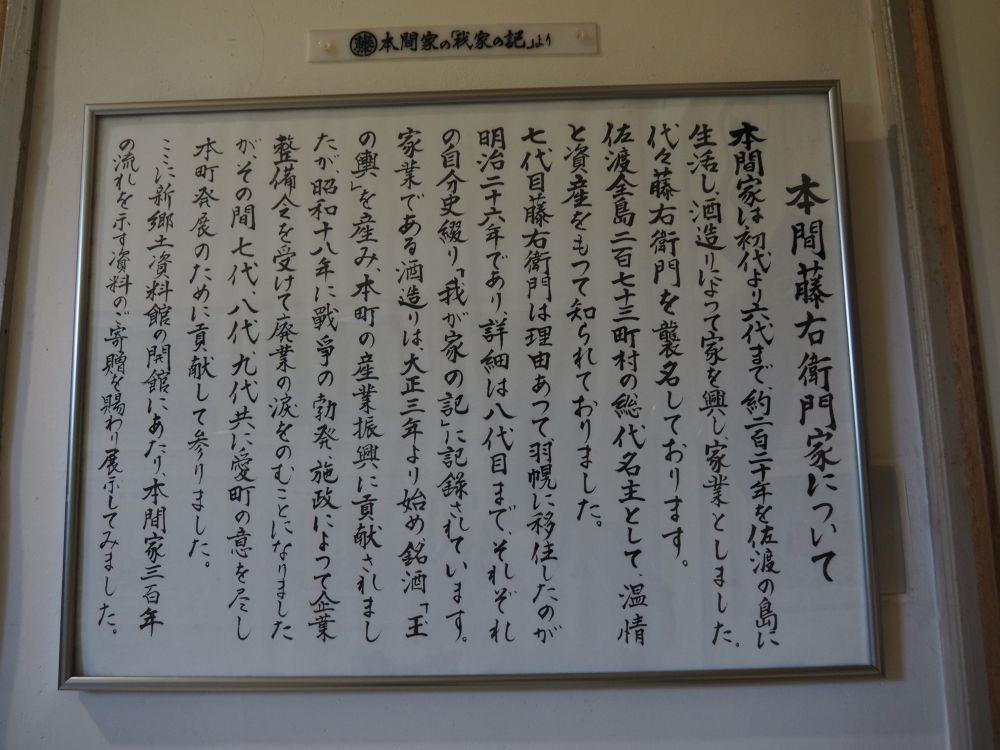 本間家の「我家の記」より
本間藤右衛門家について
本間家は初代より六代まで、約二百二十年を佐渡の島に
生活し、酒造りによって家を興し、家業としました。
代々藤右衛門を襲名しております。
佐渡全島二百七十三町村の総代名主として、温情
と資産をもつて知られておりました。
七代目藤右衛門は理由あつて羽幌に移住したのが
明治二十六年であり、詳細は八代目まで、それぞれ
の自分史綴り「我が家の記」に記録されています。
家業である酒造りは、大正三年より始め、銘酒「王
の輿」を産み本町の産業振興に貢献されまし
たが、昭和十八年に戰爭の勃発、施政によって企業
整備令を受けて廃業の涙をのむことになりました
が、その間七代、八代、九代共に愛町の意を尽し
本町発展のために貢献して参りました。
ここに新郷土資料館の開館にあたり、本間家三百年
の流れを示す資料のご寄贈を賜わり展示してみました。